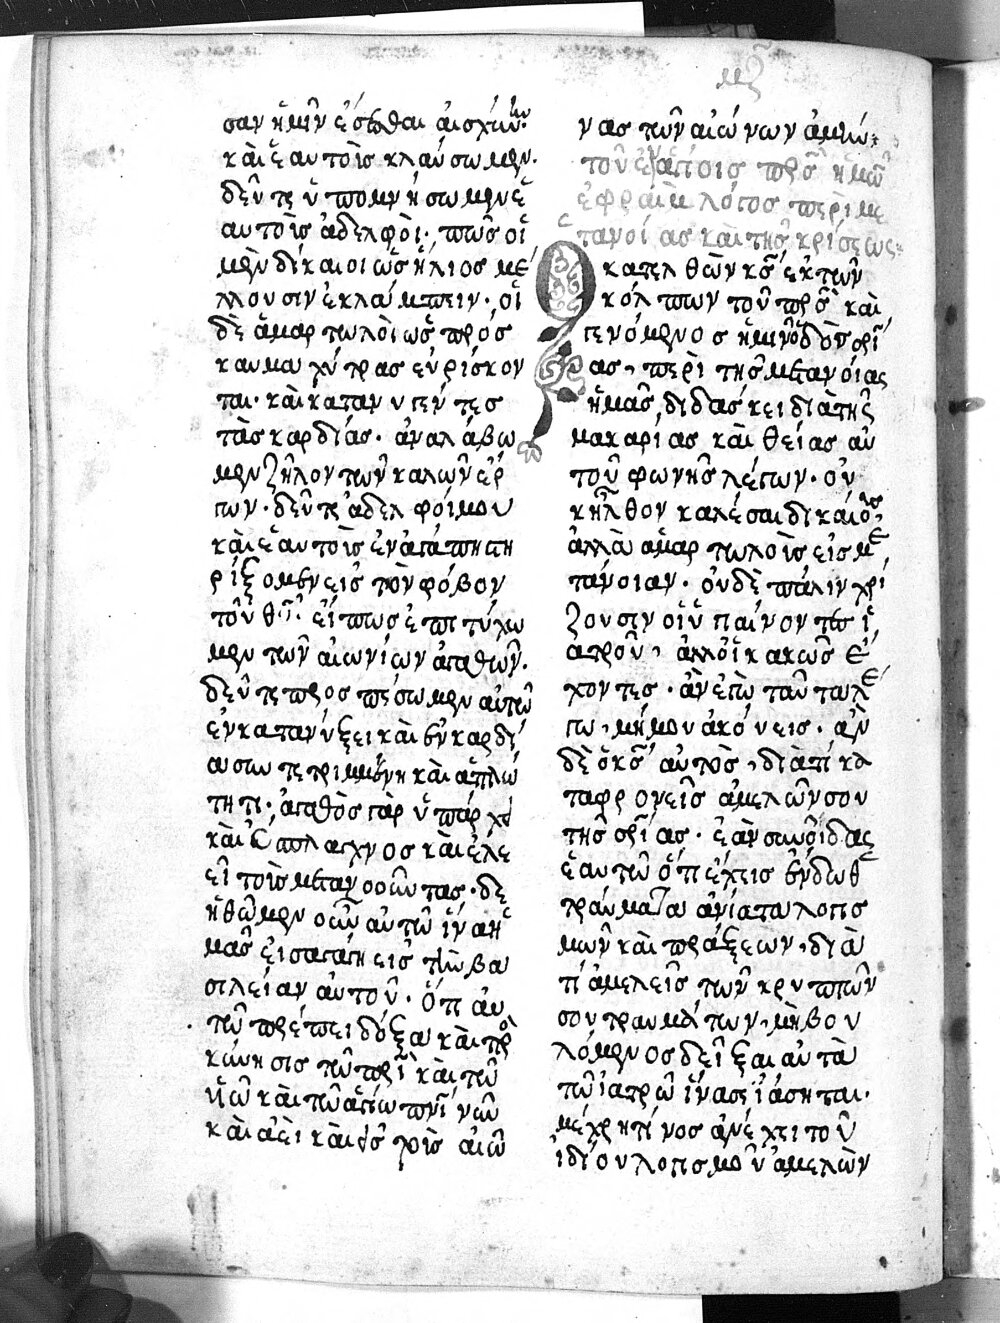 μζ
σαν ἡμῖν ἔσεσθαι αἰσχύνην.
καὶ ἑαυτοῖς κλαύσωμεν.
δεῦτε ὑπομνήσωμεν ἑ
αυτοῖς ἀδελφοὶ· πῶς οἱ
μὲν δίκαιοι ὡς ἥλιος μέ
λλουσιν ἐκλάμπειν· οἱ
δὲ ἁμαρτωλοὶ ὡς πρὸς
καυμα χύτρας εὑρίσκον
ται· καὶ κατανυγέντες
τὰς καρδίας· ἀναλάβω
μεν ζῆλον τῶν καλῶν ἔρ
γων· δεῦτε ἀδελφοί μου
καὶ ἑαυτοῖς ἐν ἀγάπῃ στη
ρίξομεν εἰς τὸν φόβον
τοῦ θῦ· εἴπως ἐπιτύχω
μεν τῶν αἰωνίων ἀγαθῶν.
δεῦτε προσπέσωμεν αὐτῶ
ἐν κατανύξει καὶ ἐν καρδί
α συντετριμμένη καὶ ἁπλώ
τητι· ἀγαθὸς γὰρ ὑπάρχει
καὶ εὔσπλαγχνος καὶ ἐλε
εῖ τοῖς μετανοοῦντας· δε
ηθῶμεν οὖν αὐτῶ ἵνα ἡ
μᾶς εἰσαγάγη εἰς τὴν βα
σιλείαν αὐτοῦ· ὅτι αυ
τῶ πρέπει δόξα καὶ προ
κύνησις τῶ πρὶ καὶ τῶ
υἱῶ καὶ τῶ ἁγίω πνι νῦν
καὶ ἀεὶ καὶ εἰς τοὺς αἰῶ
νας τῶν αἰώνων ἀμήν:
τοῦ ἐν ἁγίοις πρς ἡμῶν
ἐφραὶμ λόγος περὶ με
τανοίας καὶ τῆς κρίσεως:
Ὁ κατελθὼν κς ἐκ τῶν
κόλπων τοῦ πρς καὶ
γενόμενος ἡμῖν ὁδὸς σρί
ας, περὶ τῆς μετανοίας
ἡμᾶς διδάσκει διὰ τῆς
μακαρίας καὶ θείας αὐ
τοῦ φωνῆς λέγων· οὐ
κ ἦλθον καλέσαι δικαίους,
ἀλλὰ ἁμαρτωλοὺς εἰς με
τάνοιαν· οὐδὲ πάλιν χρί
ζουσιν οἱ ὑγιαίνοντες ἰ
ατροῦ, ἀλλοἱ κακῶς ἔ
χοντες· ἂν ἐγὼ ταῦτα λέ
γω, μή μου ἀκούεις· ἂν
δὲ ὁ κς αὐτὸς, διατί κα
ταφρονεῖς ἀμελῶν σου
τῆς σρίας· ἐὰν συνοίδας
ἑαυτῶ ὅτι ἔχεις ἔνδωθε
τραύματα ἀνίατα λογισ
μῶν καὶ πράξεων, διὰ
τί ἀμελεῖς τῶν κρυπτῶν
σου τραυμάτων, μὴ βου
λόμενος δεῖξαι αὐτὰ
τῶ ἰατρῶ ἵνα σε ἰάσηται.
μέχρη τίνος ἀνέχει τοῦ
ἰδίου λογισμοῦ ἀμελῶν